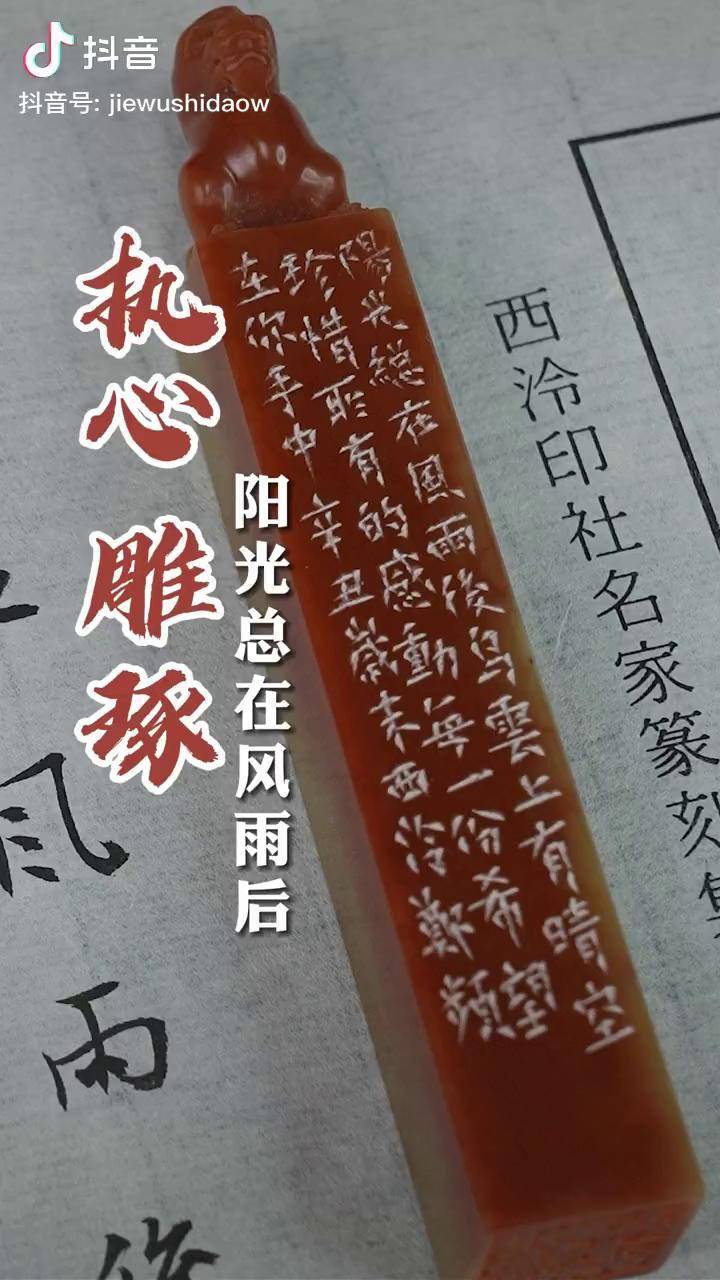 抖音
抖音号: jiewushidaow
执心雕琢
阳光总在风雨后
陽光総在風雨後烏雲上有晴空
珍惜所有的感動每一份希望
在你手中辛丑歲末西泠鄭頻
西泠印社名家篆刻集
風雨後